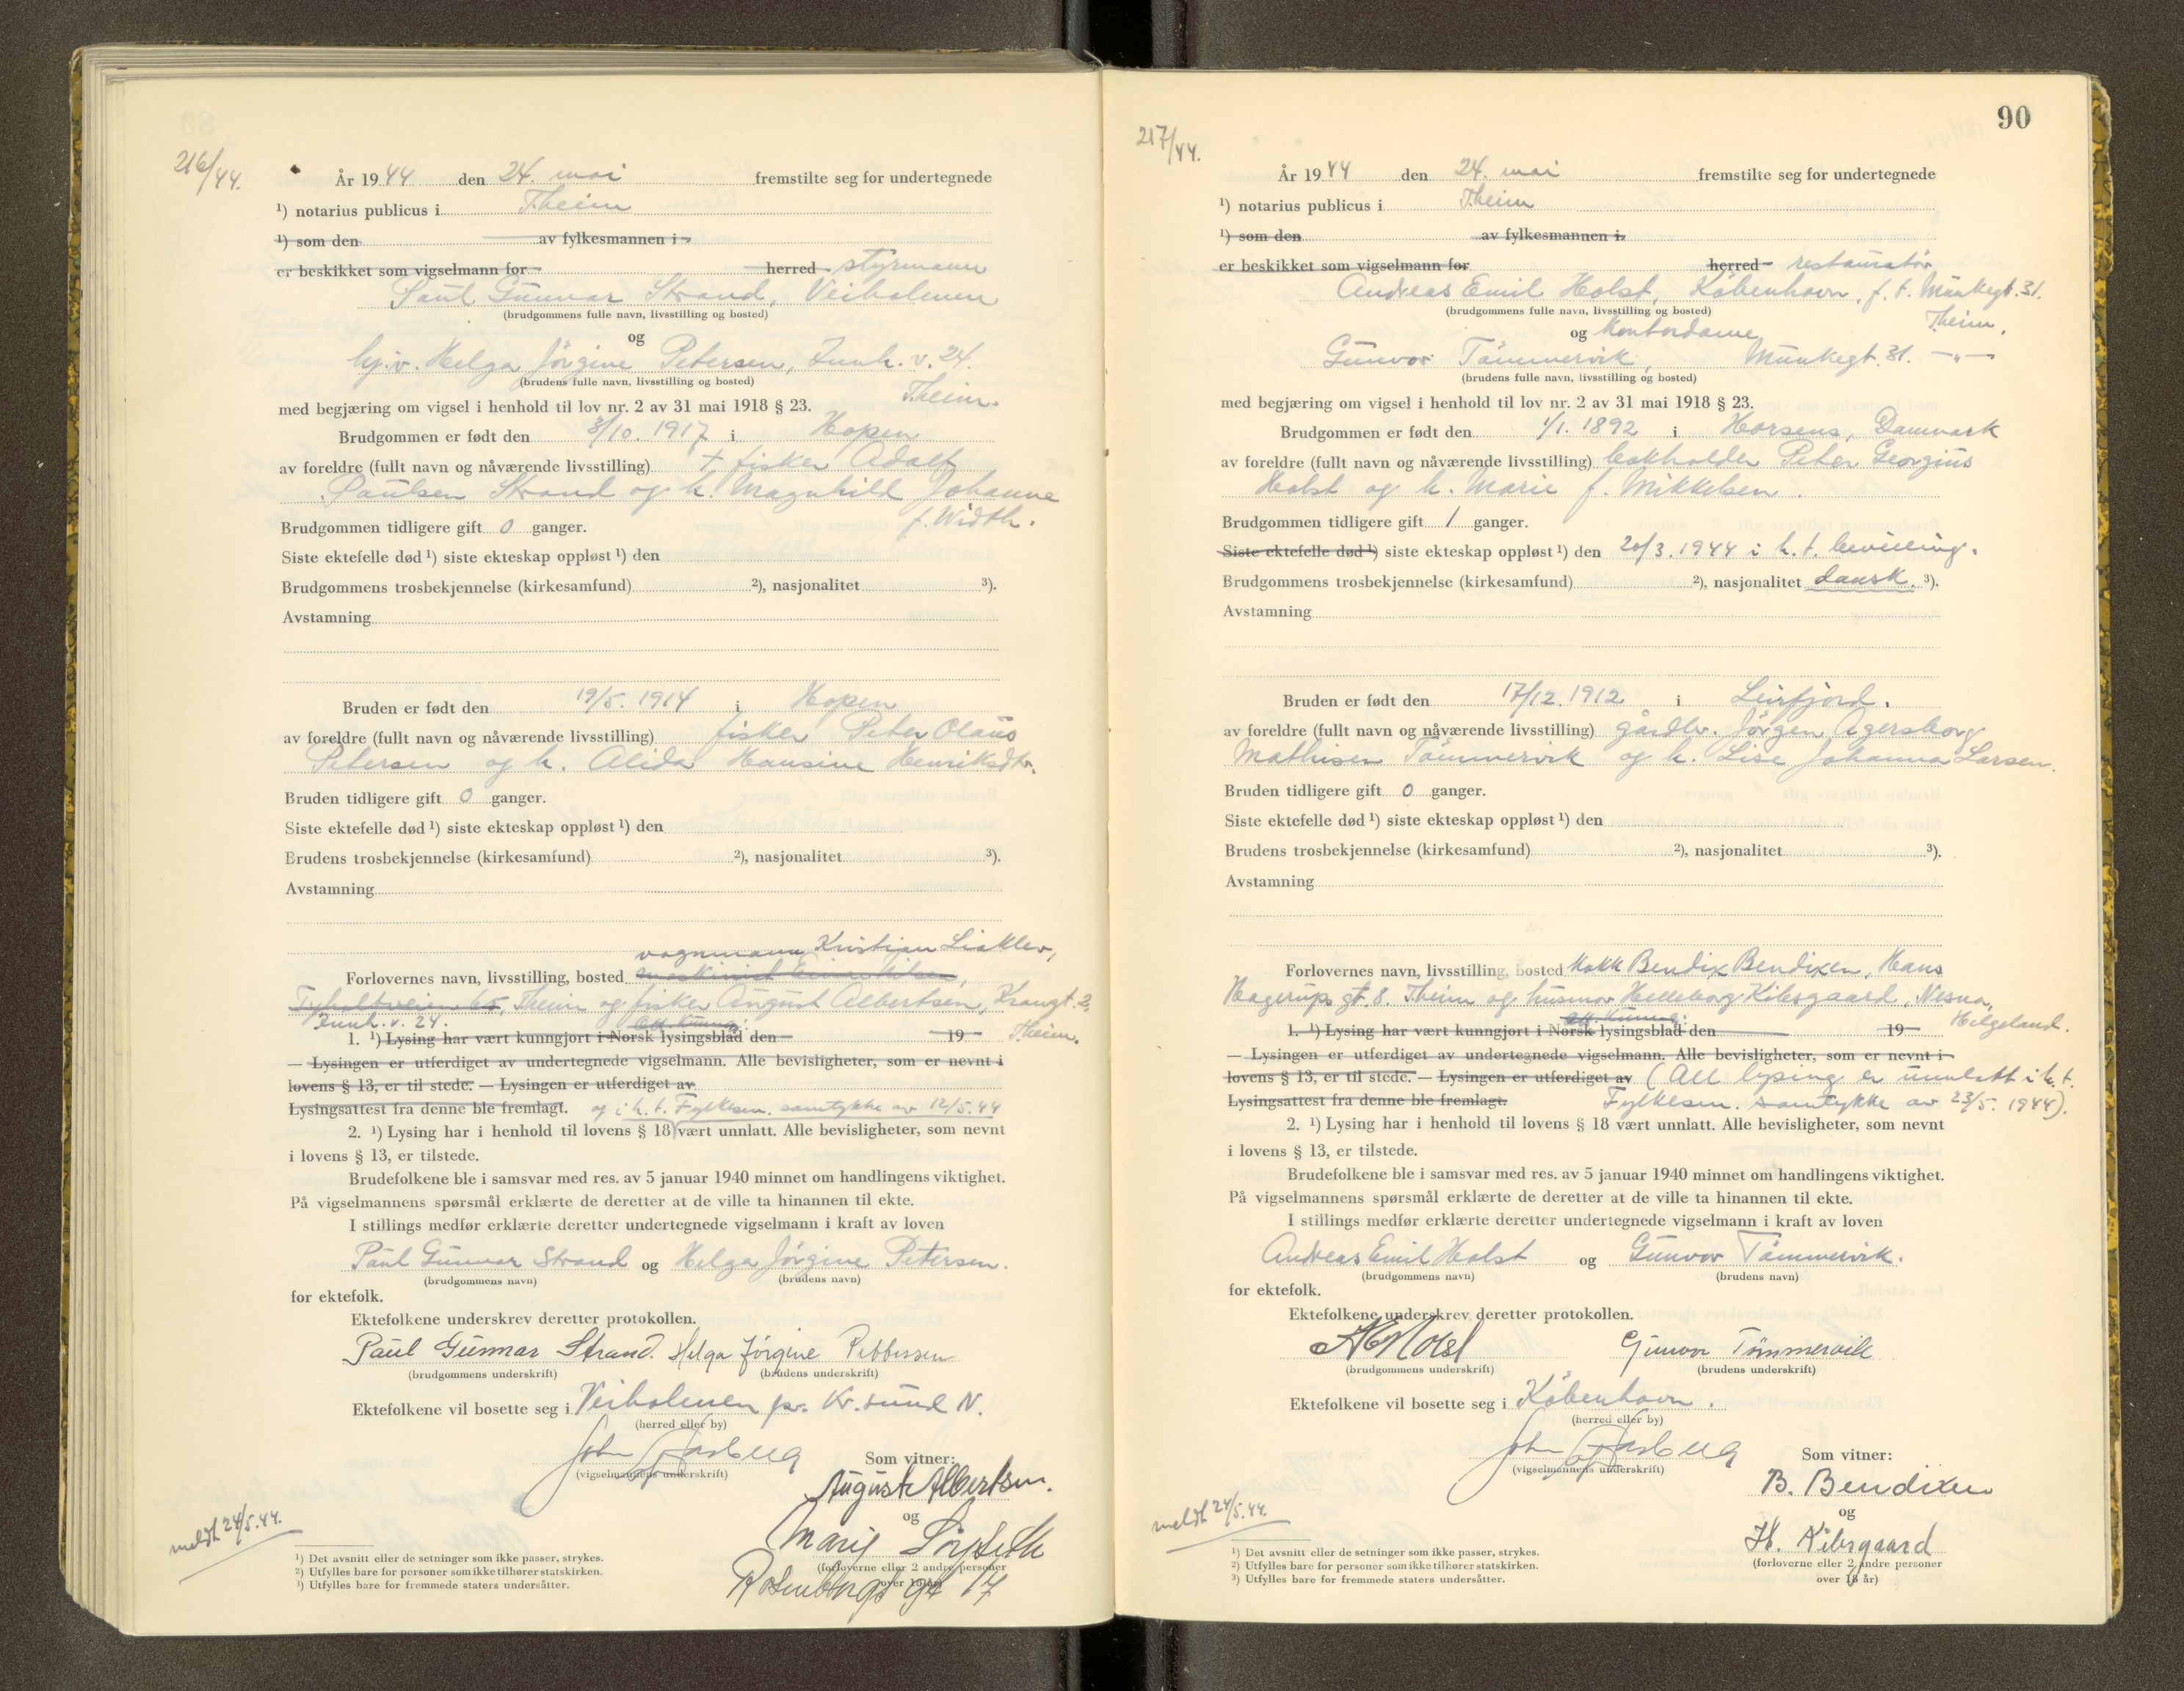 216/44.
År 1944 den 24. mai fremstilte seg for undertegnede
¹) notarius publicus i T.heim
¹) som den av fylkesmannen i
er beskikket som vigselmann for herred styrmann
Paul Gunnar Strand, Veiholmen
(brudgommens fulle navn, livsstilling og bosted)
og
hj.v. Helga Jörgine Petersen, Innh. v. 24.
(brudens fulle navn, livsstilling og bosted)
T.heim.
med begjæring om vigsel i henhold til lov nr. 2 av 31 mai 1918 § 23.
Brudgommen er født den 3/10. 1917 i Hopen
av foreldre (fullt navn og nåværende livsstilling) + fisker Adolf
Paulsen Strand og h. Magnhild Johanne
f. Width.
Brudgommen tidligere gift 0 ganger.
Siste ektefelle død ¹) siste ekteskap oppløst ¹) den
Brudgommens trosbekjennelse (kirkesamfund) ²), nasjonalitet ³).
Avstamning
Bruden er født den 19/5. 1914 i Hopen
av foreldre (fullt navn og nåværende livsstilling) fisker Peter Olaus
Petersen og h. Alida Hansine Henriksdtr.
Bruden tidligere gift 0 ganger.
Siste ektefelle død ¹) siste ekteskap oppløst ¹) den
Brudens trosbekjennelse (kirkesamfund) ²), nasjonalitet ³).
Avstamning
vognmann Kristian Liaklev,
Forlovernes navn, livsstilling, bosted maskinist Einar Nilsen,
Tyholtveien 65, T.heim og fisker August Albertsen, Krangt. 2,
Innh. v. 24. off. kunng.
T.heim.
1. ¹) Lysing har vært kunngjort i Norsk lysingsblad den 19
— Lysingen er utferdiget av undertegnede vigselmann. Alle bevisligheter, som er nevnt i
lovens § 13, er til stede. — Lysingen er utferdiget av
Lysingsattest fra denne ble fremlagt. og i h. t. Fylkesm. samtykke av 12/5.44
2. ¹) Lysing har i henhold til lovens § 18 vært unnlatt. Alle bevisligheter, som nevnt
i lovens § 13, er tilstede.
Brudefolkene ble i samsvar med res. av 5 januar 1940 minnet om handlingens viktighet.
På vigselmannens spørsmål erklærte de deretter at de ville ta hinannen til ekte.
I stillings medfør erklærte deretter undertegnede vigselmann i kraft av loven
Paul Gunnar Strand og Helga Jörgine Petersen.
(brudgommens navn) (brudens navn)
for ektefolk.
Ektefolkene underskrev deretter protokollen.
Paul Gunnar Strand. Helga Jörgine Pettersen
(brudgommens underskrift) (brudens underskrift)
Ektefolkene vil bosette seg i Veiholmen pr. Kr.sund N.
(herred eller by)
John Aasberg
(vigselmannens underskrift)
Som vitner:
August Albertsen.
og
Marie
(forloverne eller 2 andre personer
over 18 år)
Rosenborgs gt 17
meldt 24/5.44.
¹) Det avsnitt eller de setninger som ikke passer, strykes.
²) Utfylles bare for personer som ikke tilhører statskirken.
³) Utfylles bare for fremmede staters undersåtter.
90
217/44.
År 1944 den 24. mai fremstilte seg for undertegnede
¹) notarius publicus i T.heim
¹) som den av fylkesmannen i
er beskikket som vigselmann for herred restauratör
Andreas Emil Holst, Köbenhavn, f. t. Munkegt. 31.
(brudgommens fulle navn, livsstilling og bosted)
T.heim.
og kontordame
Gunvor Tömmervik, Munkegt. 31. —„—
(brudens fulle navn, livsstilling og bosted)
med begjæring om vigsel i henhold til lov nr. 2 av 31 mai 1918 § 23.
Brudgommen er født den 1/1. 1892 i Horsens, Danmark
av foreldre (fullt navn og nåværende livsstilling) bokholder Peter Georgius
Holst og h. Marie f. Mikkelsen.
Brudgommen tidligere gift 1 ganger.
Siste ektefelle død ¹) siste ekteskap oppløst ¹) den 20/3. 1944 i h. t. bevilling.
Brudgommens trosbekjennelse (kirkesamfund) ²), nasjonalitet dansk. ³).
Avstamning
Bruden er født den 17/12. 1912 i Leirfjord.
av foreldre (fullt navn og nåværende livsstilling) gårdbr. Jörgen Agersborg
Mathisen Tömmervik og h. Lise Johanna Larsen.
Bruden tidligere gift 0 ganger.
Siste ektefelle død ¹) siste ekteskap oppløst ¹) den
Brudens trosbekjennelse (kirkesamfund) ²), nasjonalitet ³).
Avstamning
Forlovernes navn, livsstilling, bosted kokk Bendix Bendixen, Hans
Hagerups gt. 8. T.heim og husmor Helleborg Kibsgaard, Nesna,
off. kunng. Helgeland.
1. ¹) Lysing har vært kunngjort i Norsk lysingsblad den 19
— Lysingen er utferdiget av undertegnede vigselmann. Alle bevisligheter, som er nevnt i
lovens § 13, er til stede. — Lysingen er utferdiget av (All lysing er unnlatt i h. t.
Lysingsattest fra denne ble fremlagt. Fylkesm. samtykke av 23/5. 1944).
2. ¹) Lysing har i henhold til lovens § 18 vært unnlatt. Alle bevisligheter, som nevnt
i lovens § 13, er tilstede.
Brudefolkene ble i samsvar med res. av 5 januar 1940 minnet om handlingens viktighet.
På vigselmannens spørsmål erklærte de deretter at de ville ta hinannen til ekte.
I stillings medfør erklærte deretter undertegnede vigselmann i kraft av loven
Andreas Emil Holst og Gunvor Tömmervik.
(brudgommens navn) (brudens navn)
for ektefolk.
Ektefolkene underskrev deretter protokollen.
AEHolst Gunvor Tömmervik
(brudgommens underskrift) (brudens underskrift)
Ektefolkene vil bosette seg i Köbenhavn.
(herred eller by)
John Aasberg
(vigselmannens underskrift)
Som vitner:
B. Bendixen
og
H. Kibsgaard
(forloverne eller 2 andre personer
over 18 år)
meldt 24/5.44.
¹) Det avsnitt eller de setninger som ikke passer, strykes.
²) Utfylles bare for personer som ikke tilhører statskirken.
³) Utfylles bare for fremmede staters undersåtter.